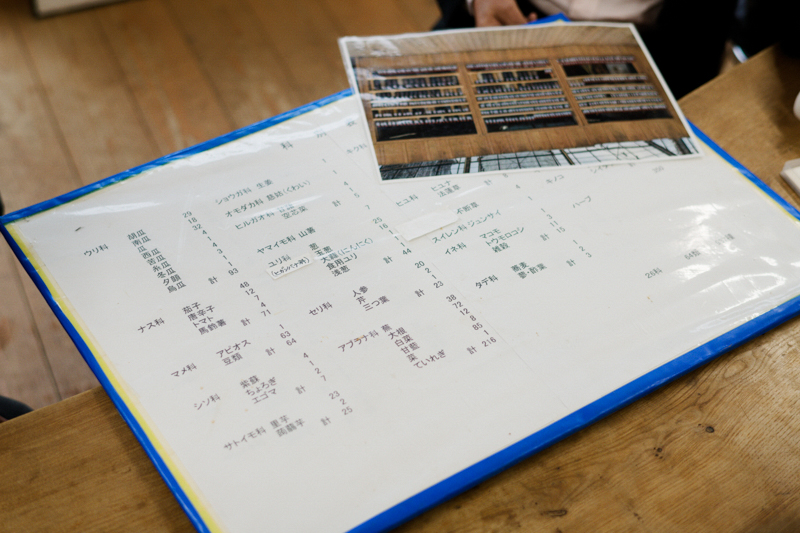 科
ウリ科 胡瓜 29
南瓜 18
瓜 32
西瓜 4
苦瓜 1
糸瓜 4
冬瓜 3
夕顔 1
烏瓜 1
計 93
ナス科 茄子 48
唐辛子 12
トマト 7
馬鈴薯 4
計 71
マメ科 アピオス 1
豆類 63
計 64
シソ科 紫蘇 4
ちょろぎ 1
エゴマ 2
計 7
サトイモ科 里芋 23
蒟蒻芋 2
計 25
ショウガ科 生姜 1
オモダカ科 慈姑(くわい) 4
ヒルガオ科
空芯菜
計
ヤマイモ科 山薯
ユリ科 葱 25
(ヒガンバナ科) 玉葱 16
大蒜(にんにく) 1
食用ユリ 1
浅葱 1
計 44
セリ科 人参 20
芹 2
三つ葉 1
計 23
アブラナ科 蕪 38
大根 72
白菜 12
甘藍 8
菜 85
ていれぎ 1
計 216
キク科
ヒユ科 ヒユナ
法蓮草
計
不断草
スイレン科 ジュンサイ 1
イネ科 マコモ 1
トウモロコシ 11
雑穀 3
計 15
タデ科 蕎麦 1
蓼・酢葉 2
計 3
キノコ
ハーブ
26科 64種